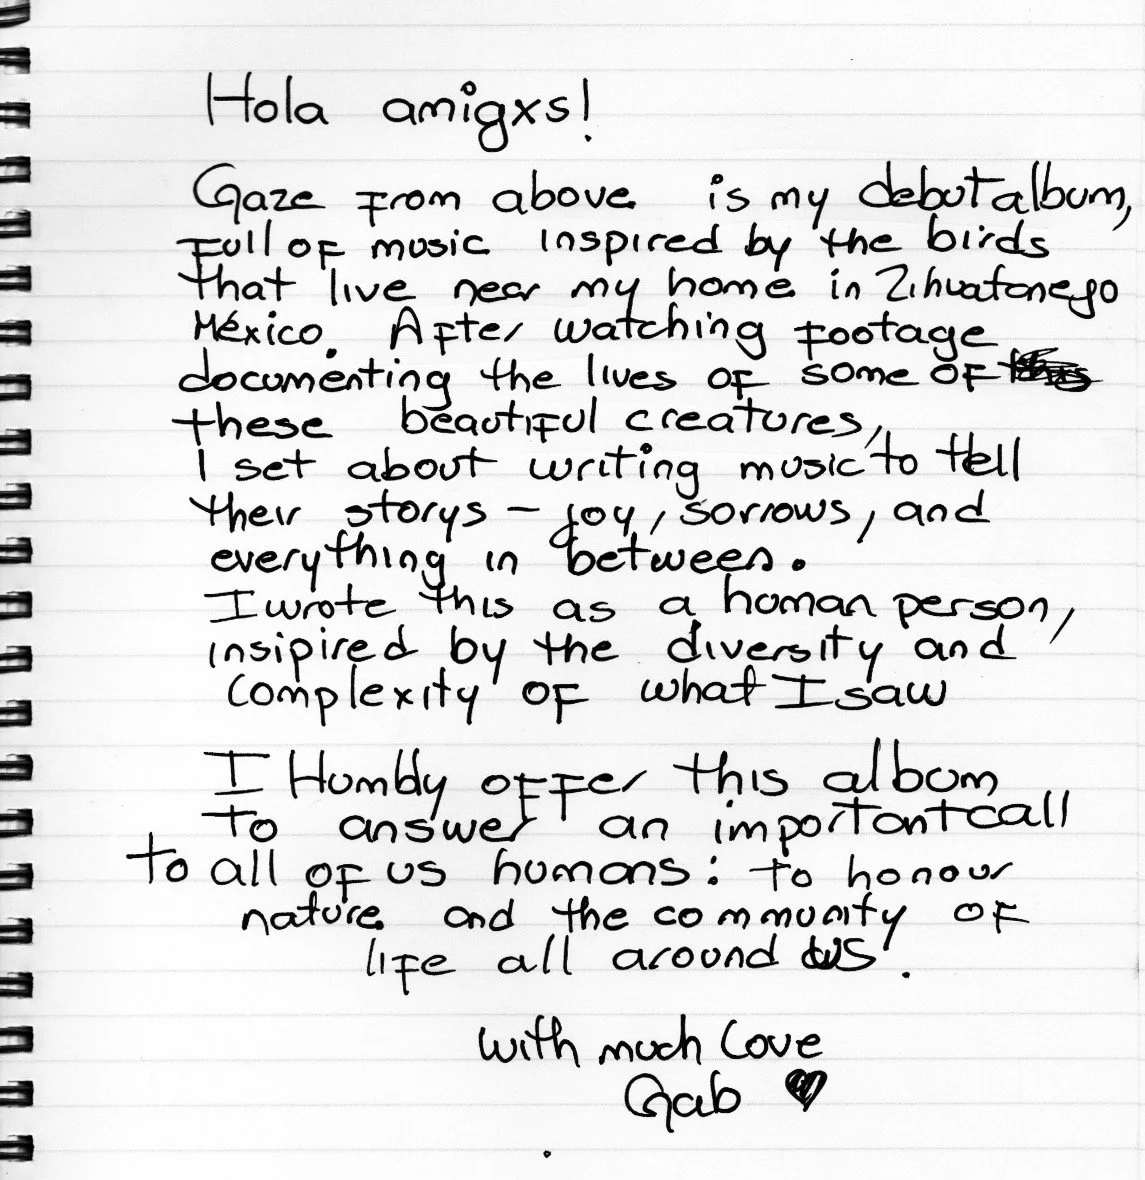 Hola amigxs!
Gaze from above is my debut album,
full of music inspired by the birds
that live near my home in Zihuatanejo
México. After watching footage
documenting the lives of some of
these beautiful creatures,
I set about writing music to tell
their storys – joy, sorrows, and
everything in between.
I wrote this as a homan person,
insipired by the diversity and
complexity of what I saw
I Humbly offer this album
to answer an important call
to all of us humans: to honour
nature and the community of
life all around us.
with much love
Gab ♥